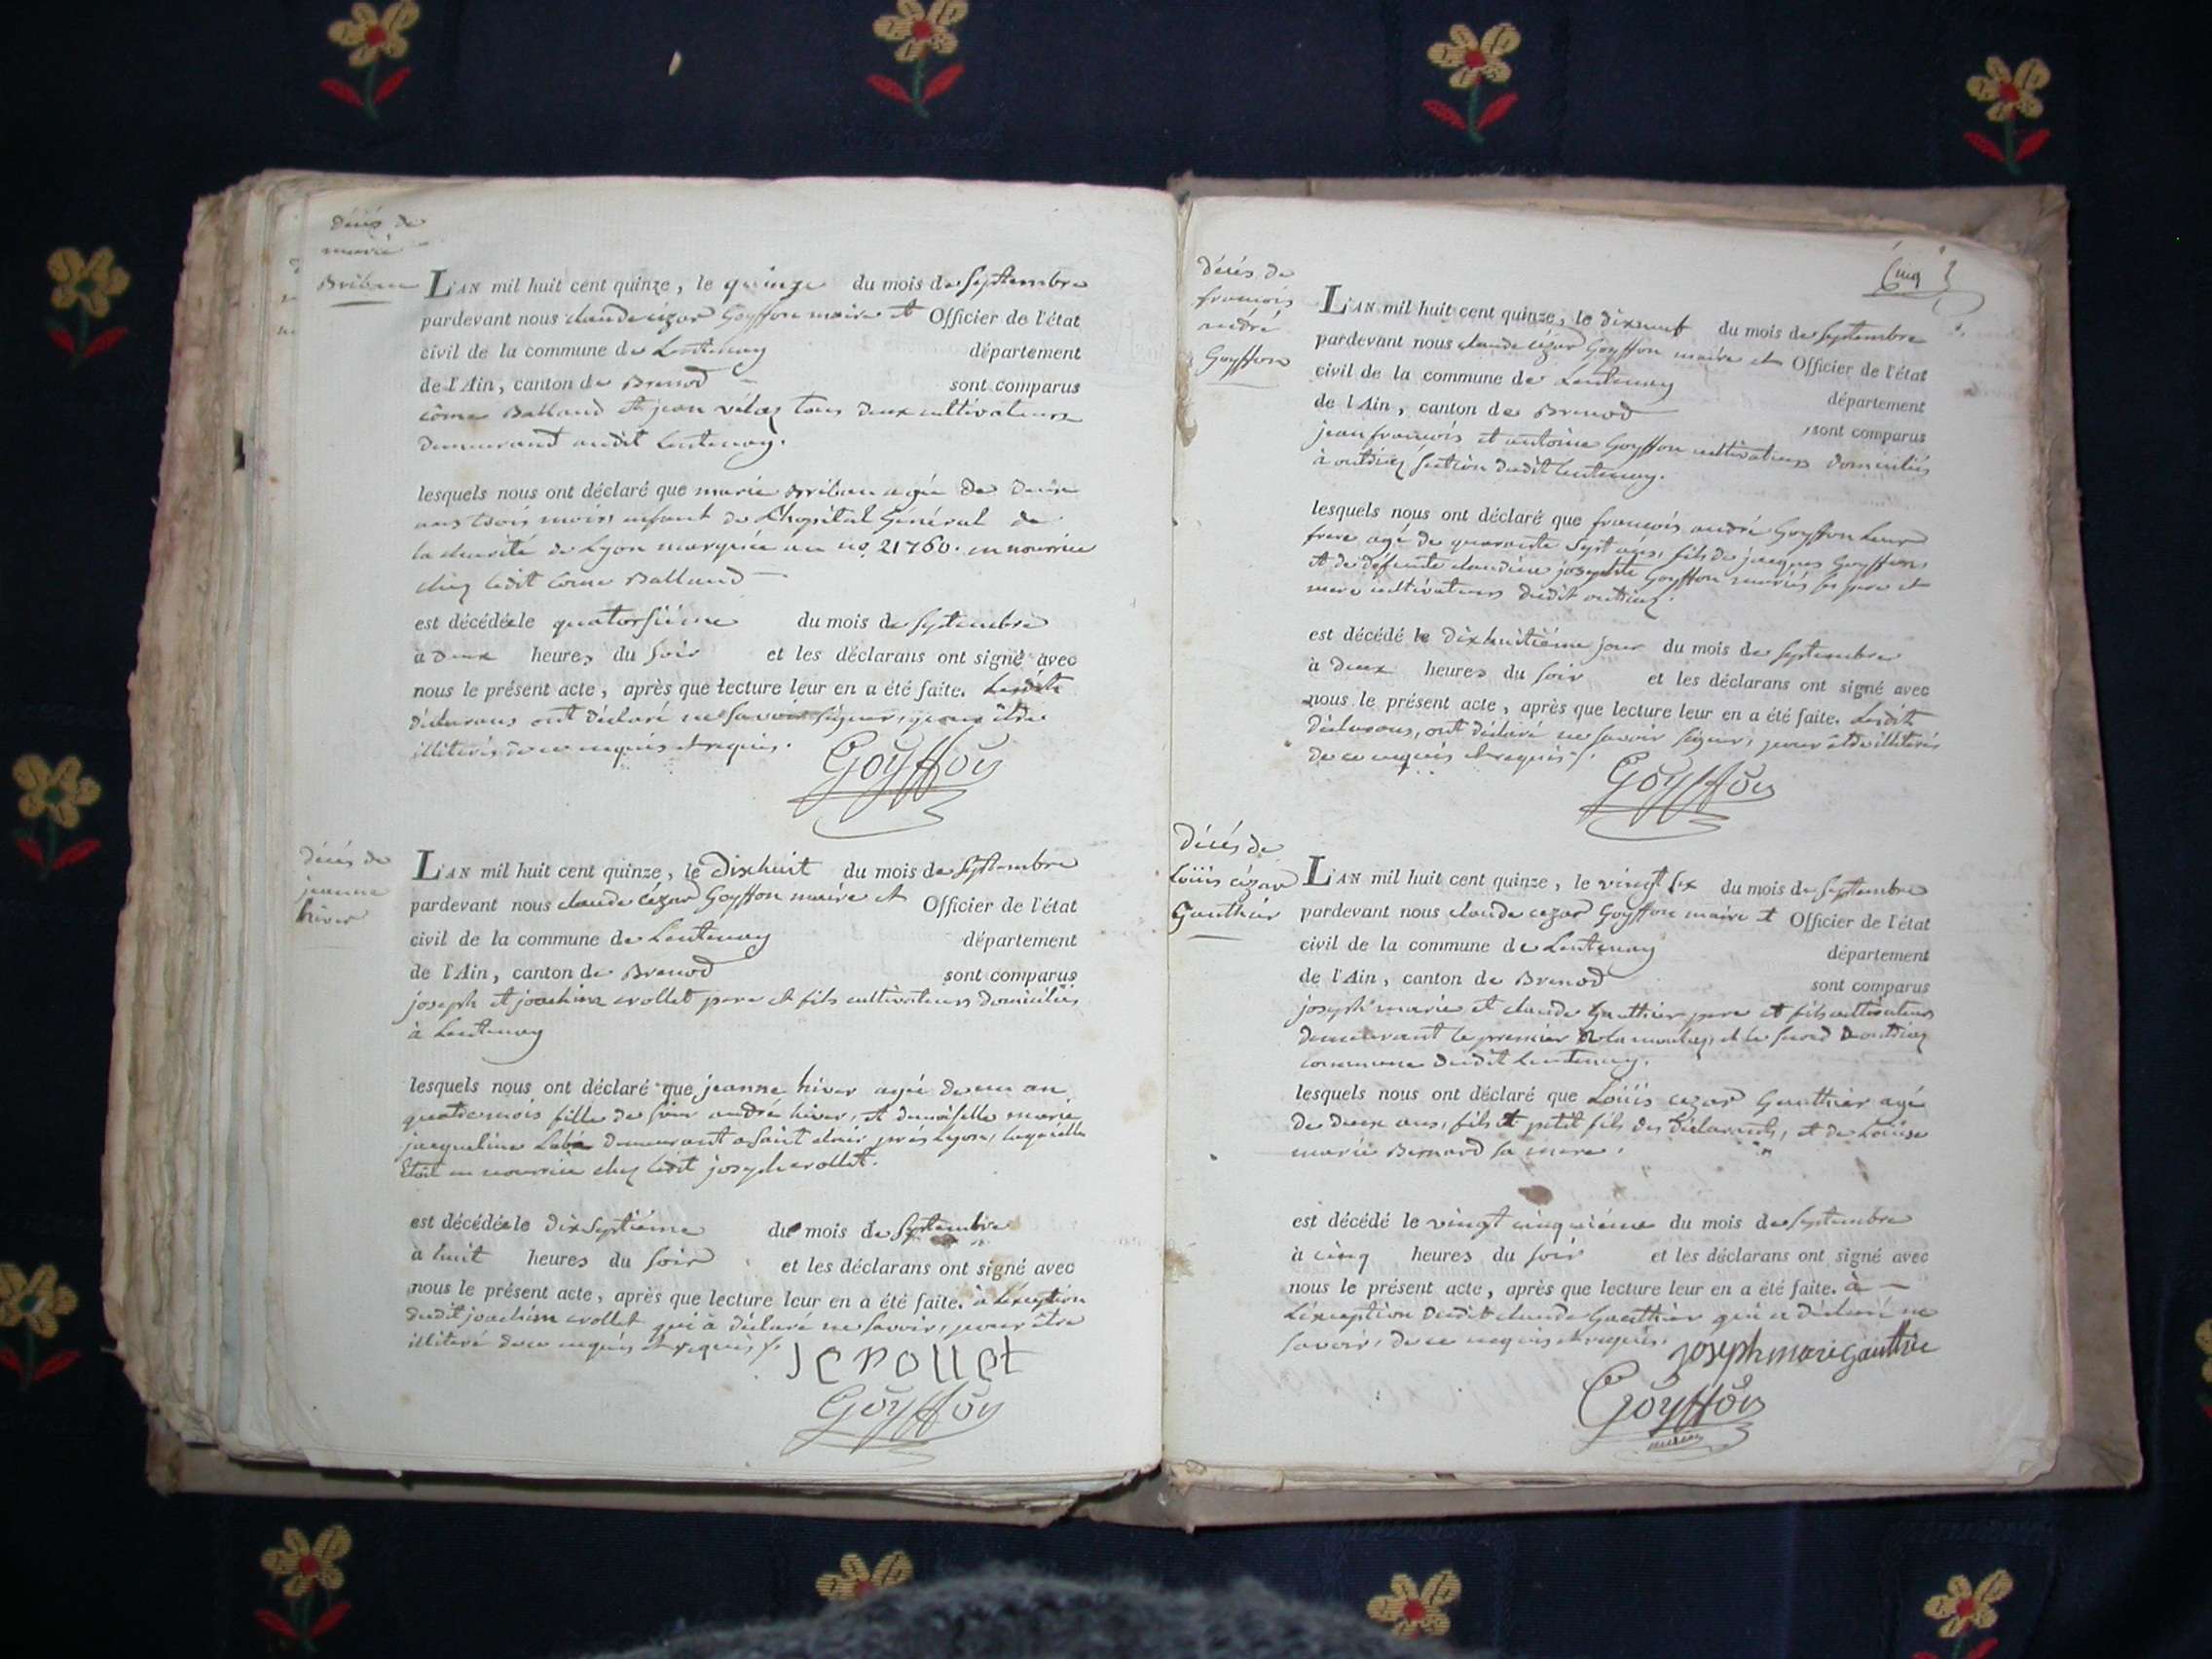 décès de
marie
Briban
L'AN mil huit cent quinze, le quinze du mois de septembre
pardevant nous claude cézar Goyffon maire et Officier de l'état
civil de la commune de Lentenay département
de l'Ain, canton de Brenod sont comparus
côme Balland et jean vélaz tous deux cultivateurs
demeurant audit Lentenay.
lesquels nous ont déclaré que marie Briban agée de deux
ans trois mois, enfant de L'hopital Général de
la charité de Lyon marquée au no. 21760. en nourrice
chez ledit Come Balland
est décédée le quatorsiéme du mois de septembre
à deux heures du soir et les déclarans ont signé avec
nous le présent acte, après que lecture leur en a été faite. Lesdits
déclarans ont déclaré ne savoir signer, pour être
illiterés de ce enquis et requis.
Goyffon
décès de
jeanne
hiver
L'AN mil huit cent quinze, le dixhuit du mois de septembre
pardevant nous claude cézar Goyffon maire et Officier de l'état
civil de la commune de Lentenay département
de l'Ain, canton de Brenod sont comparus
joseph et joachim crollet pere et fils cultivateurs domiciliés
à Lentenay
lesquels nous ont déclaré que jeanne hiver agée de un an
quatre mois fille de sieur andré hiver, et demoiselle marie
jacqueline Labé demeurant a saint clair près Lyon, laquelle
Etoit en nourrice chez ledit joseph crollet.
est décédée le dix septiéme du mois de septembre
à huit heures du soir et les déclarans ont signé avec
nous le présent acte, après que lecture leur en a été faite. à L'exception
dudit joachim crollet qui a déclaré ne savoir, pour être
illiteré de ce enquis et requis.
J crollet
Goyffon
Cinq
décès de
francois
andré
Goyffon
L'AN mil huit cent quinze, le dixneuf du mois de septembre
pardevant nous claude cézar Goyffon maire et Officier de l'état
civil de la commune de Lentenay
de l'Ain, canton de Brenod département
sont comparus
jean francois et antoine Goyffon cultivateurs domiciliés
à outriaz section dudit Lentenay.
lesquels nous ont déclaré que francois andré Goyffon Leur
frere agé de quarante sept ans, fils de jacques Goyffon
et de défunte claudine josephte Goyffon mariés ses pere et
mere cultivateurs dudit outriaz.
est décédé le dixhuitiéme jour du mois de septembre
à deux heures du soir et les déclarans ont signé avec
nous le présent acte, après que lecture leur en a été faite. Lesdits
déclarans, ont déclaré ne savoir signer, pour être illiterés
de ce enquis et requis.
Goyffon
décès de
Loüis cézar
Gauthier
L'AN mil huit cent quinze, le vingt six du mois de septembre
pardevant nous claude cezar Goyffon maire et Officier de l'état
civil de la commune de Lentenay département
de l'Ain, canton de Brenod sont comparus
joseph marie et claude Gauthier pere et fils cultivateurs
demeurant le premier et le second outriaz
commune dudit Lentenay.
lesquels nous ont déclaré que Loüis cezar Gauthier agé
de deux ans, fils et petit fils des déclarants, et de Loüise
marie Bernard sa mere.
est décédé le vingt cinquiéme du mois de septembre
à cinq heures du soir et les déclarans ont signé avec
nous le présent acte, après que lecture leur en a été faite. à
L'exception dudit claude Gauthier qui a déclaré ne
savoir, de ce enquis et requis.
joseph marie gauthie
Goyffon